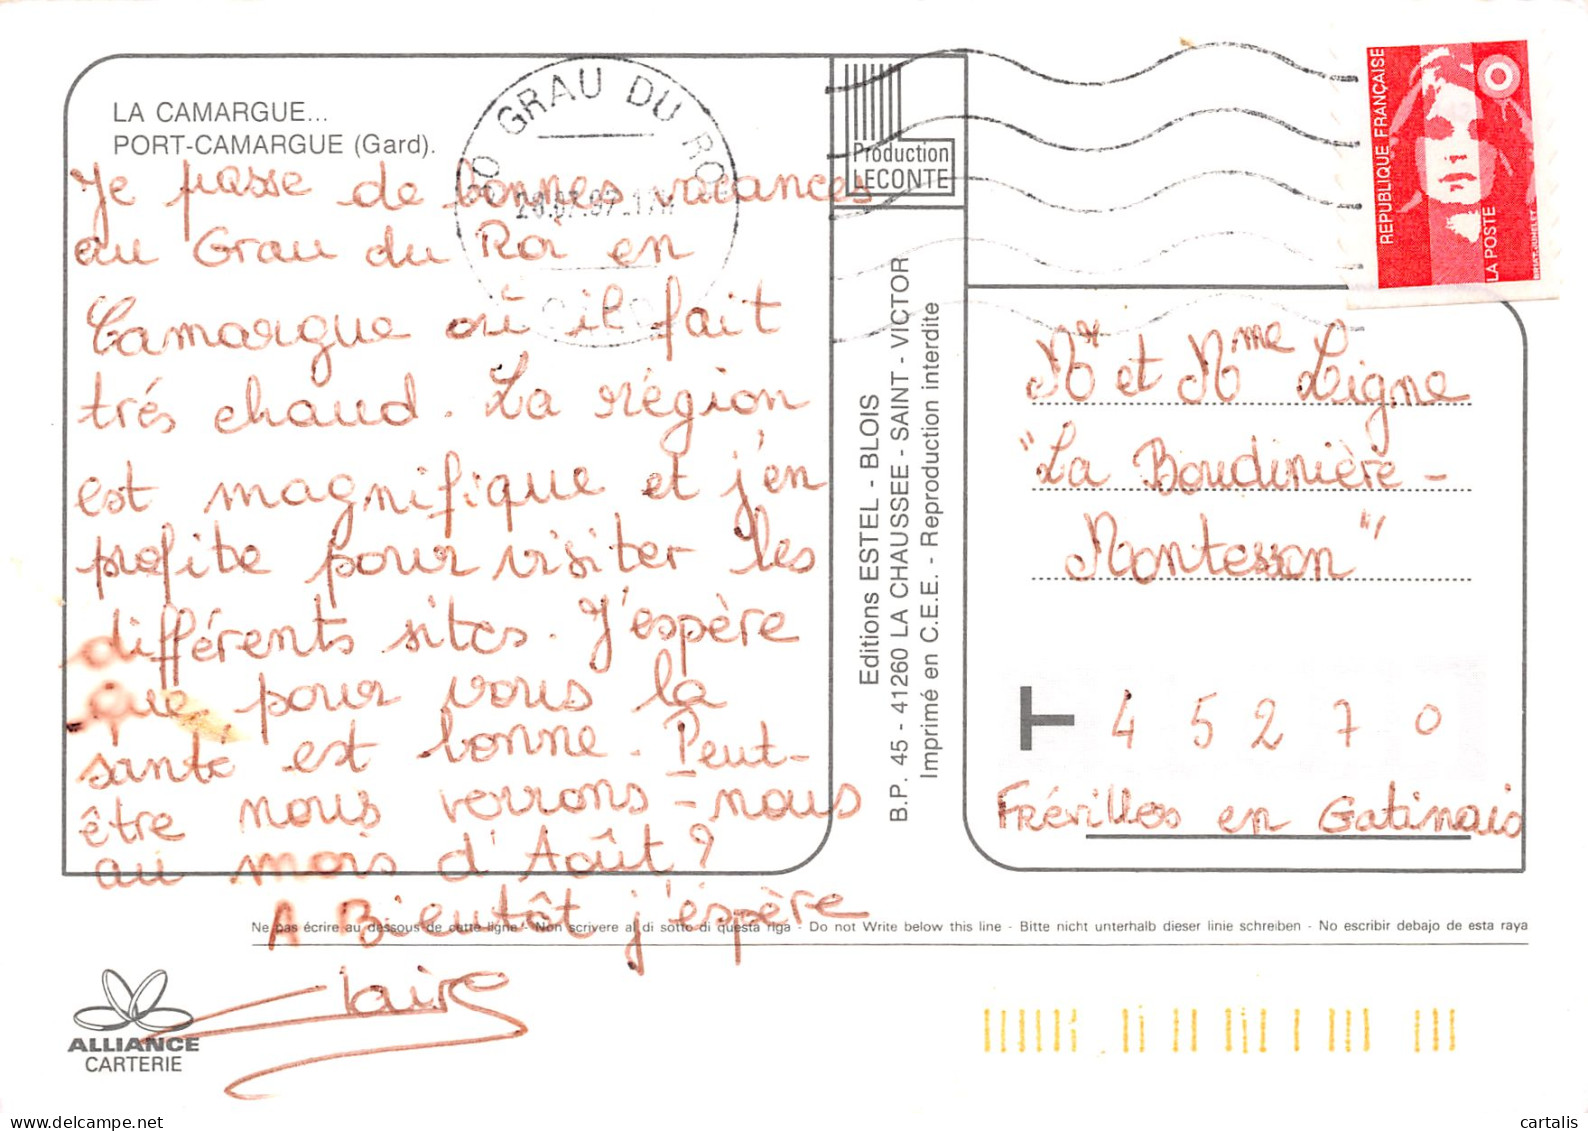 LA CAMARGUE...
PORT-CAMARGUE (Gard).
Je passe de bonnes vacances
au Grau du Roi en
Camargue où il fait
trés chaud. La région
est magnifique et j'en
profite pour visiter les
différents sites. J'espère
que pour vous la
santé est bonne. Peut-
être nous verrons-nous
au mois d'Août?
A Bientôt j'éspère
Claire
30 GRAU DU ROI
Production
LECONTE
Editions ESTEL - BLOIS
B.P. 45 - 41260 LA CHAUSSEE - SAINT - VICTOR
Imprimé en C.E.E. - Reproduction interdite
REPUBLIQUE FRANÇAISE
LA POSTE
BRIAT-JUMELET
Mr et Mme Ligne
"La Boudinière -
Montesson"
45270
Frévilles en Gatinais
Ne pas écrire au dessous de cette ligne - Non scrivere al di sotto di questa riga - Do not Write below this line - Bitte nicht unterhalb dieser linie schreiben - No escribir debajo de esta raya
ALLIANCE
CARTERIE
cartalis delcampe.net